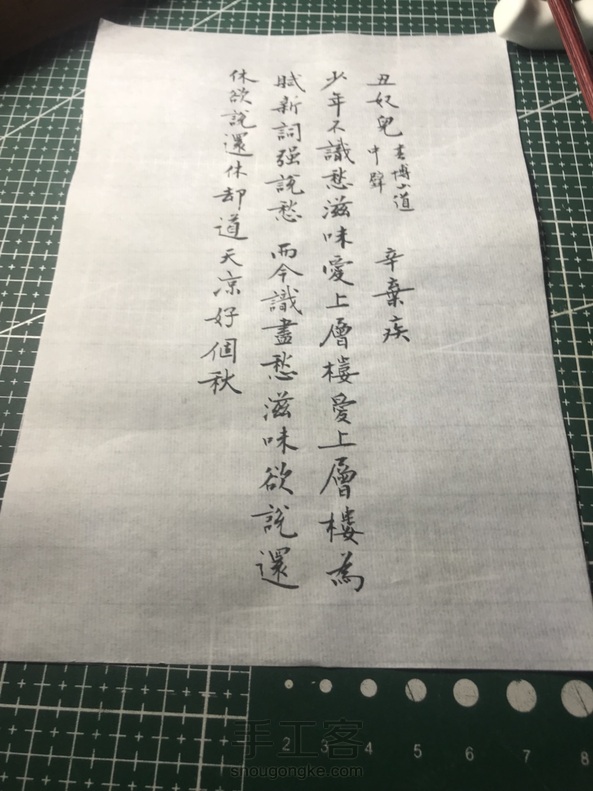 丑奴兒 書博山道中壁 辛棄疾
少年不識愁滋味愛上層樓愛上層樓為
賦新詞强說愁 而今識盡愁滋味欲說還
休欲說還休却道天凉好個秋
2 3 4 5 6 7 8
手工客
shougongke.com